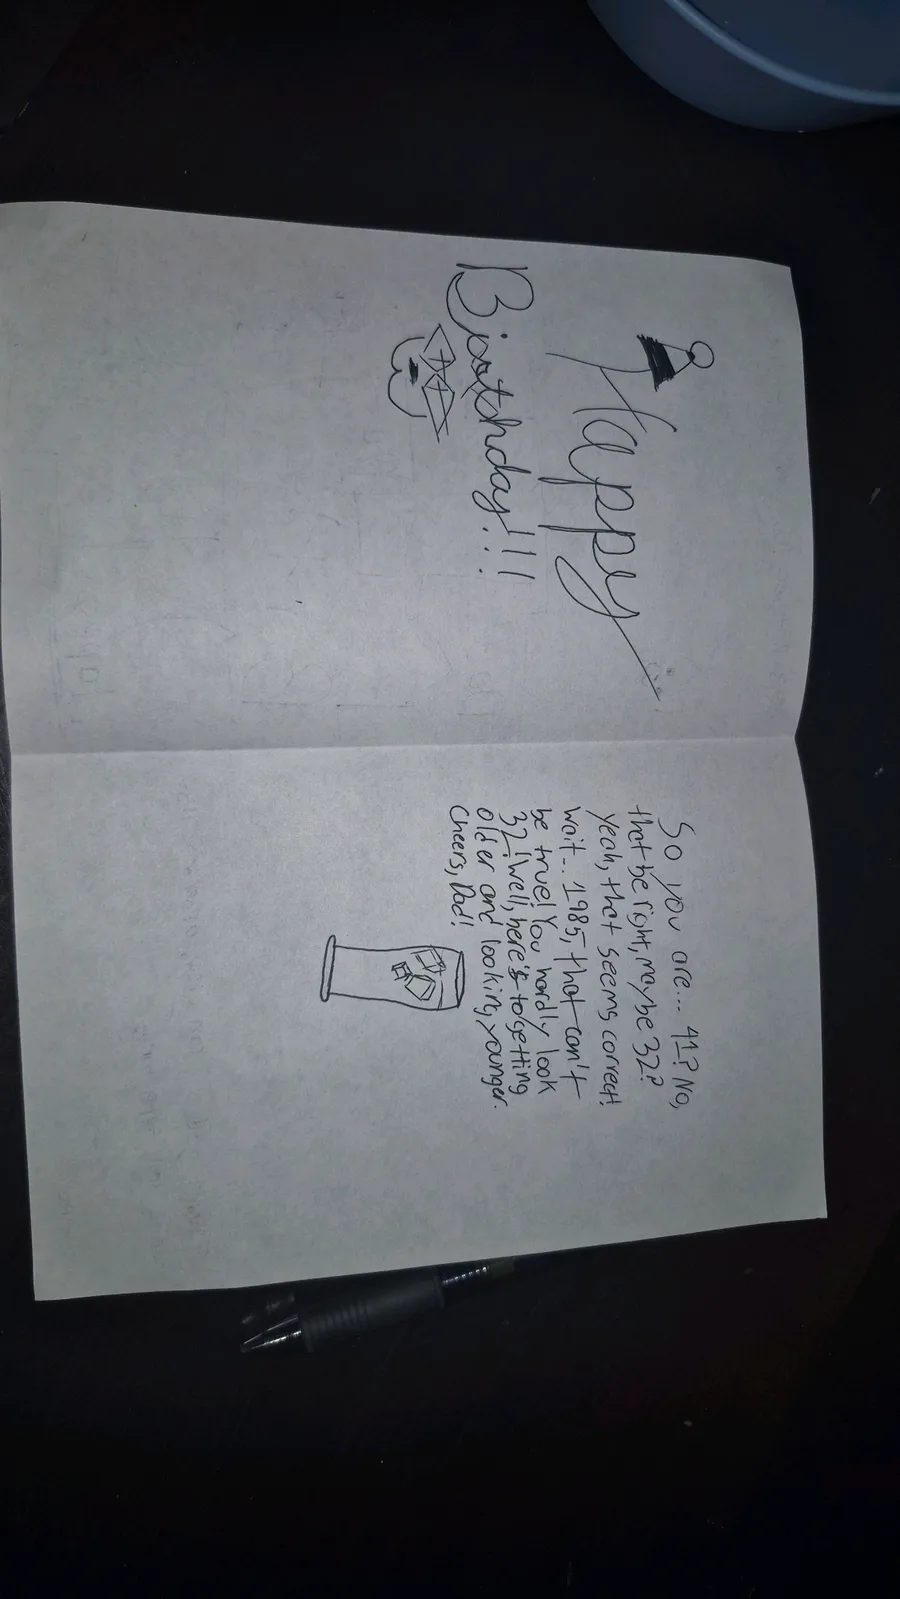 Happy
Birthday!!!
So you are... 41? No,
that be right, maybe 32?
Yeah, that seems correct!
Wait... 1985, that can't
be true! You hardly look
32! Well, here's to getting
older and looking younger.
Cheers, Dad!